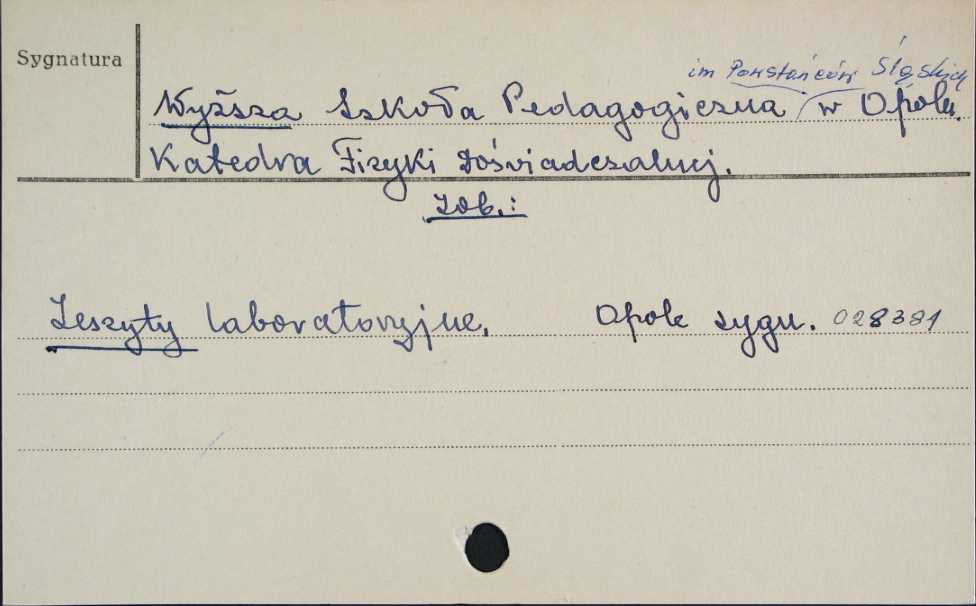 Sygnatura
im Powstańców Śląskich
Wyższa Szkoła Pedagogiczna w Opolu.
Katedra Fizyki Doświadczalnej.
Zob.:
Zeszyty laboratoryjne. Opole sygn. 028381